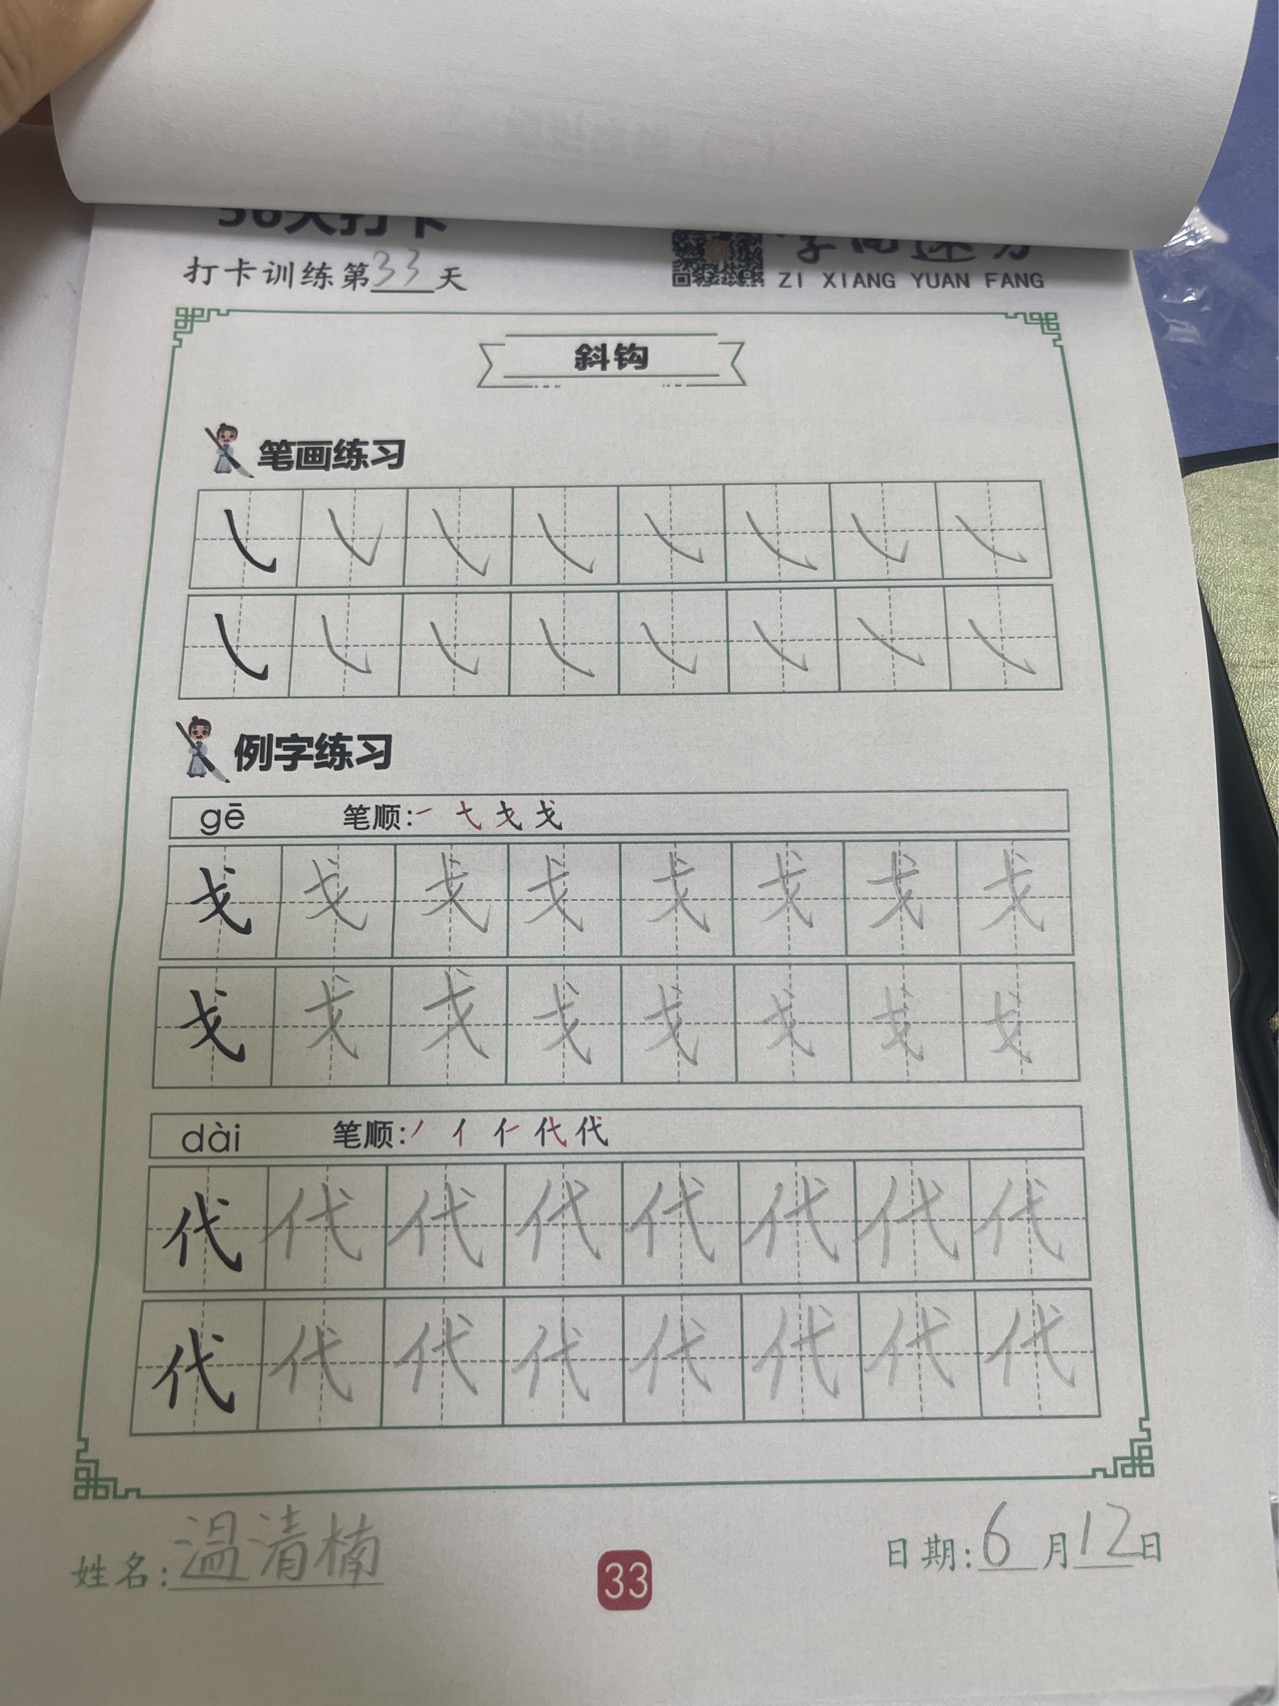 打卡训练第33天
ZI XIANG YUAN FANG
斜钩
笔画练习
㇂㇂㇂㇂㇂㇂㇂㇂
㇂㇂㇂㇂㇂㇂㇂㇂
例字练习
gē 笔顺: 戈
戈戈戈戈戈戈戈戈
戈戈戈戈戈戈戈戈
dài 笔顺: 丿 亻 代
代代代代代代代代
代代代代代代代代
姓名:温清楠
33
日期:6月12日